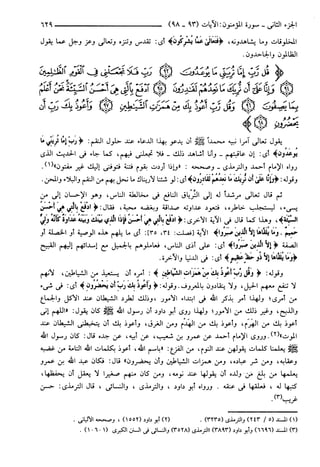 الجزء الثاني - سورة المؤمنون: الآيات (٩٣ - ٩٨) ٦٢٩
المخلوقات وما يشاهدونه، ﴿فَتَعَالَىٰ عَمَّا يُشْرِكُونَ﴾ أي: تقدس وتنزه وتعالى وعز وجل عما يقول
الظالمون والجاحدون.
﴿قُل رَّبِّ إِمَّا تُرِيَنِّي مَا يُوعَدُونَ ۝ رَبِّ فَلَا تَجْعَلْنِي فِي الْقَوْمِ الظَّالِمِينَ
۝ وَإِنَّا عَلَىٰ أَن نُّرِيَكَ مَا نَعِدُهُمْ لَقَادِرُونَ ۝ ادْفَعْ بِالَّتِي هِيَ أَحْسَنُ السَّيِّئَةَ نَحْنُ أَعْلَمُ
بِمَا يَصِفُونَ ۝ وَقُل رَّبِّ أَعُوذُ بِكَ مِنْ هَمَزَاتِ الشَّيَاطِينِ ۝ وَأَعُوذُ بِكَ رَبِّ أَن
يَحْضُرُونِ﴾
يقول تعالى آمرا نبيه محمدا ﷺ أن يدعو بهذا الدعاء عند حلول النقم: ﴿رَبِّ إِمَّا تُرِيَنِّي مَا
يُوعَدُونَ﴾ أي: إن عاقبتهم - وأنا أشاهد ذلك - فلا تجعلني فيهم، كما جاء في الحديث الذي
رواه الإمام أحمد والترمذي - وصححه -: «وإذا أردت بقوم فتنة فتوفني إليك غير مفتون»(١).
وقوله: ﴿وَإِنَّا عَلَىٰ أَن نُّرِيَكَ مَا نَعِدُهُمْ لَقَادِرُونَ﴾ أي: لو شئنا لأريناك ما نحل بهم من النقم والبلاء والمحن.
ثم قال تعالى مرشدا له إلى الترياق النافع في مخالطة الناس، وهو الإحسان إلى من
يسيء، ليستجلب خاطره، فتعود عداوته صداقة وبغضه محبة، فقال: ﴿ادْفَعْ بِالَّتِي هِيَ أَحْسَنُ
السَّيِّئَةَ﴾، وهذا كما قال في الآية الأخرى: ﴿ادْفَعْ بِالَّتِي هِيَ أَحْسَنُ فَإِذَا الَّذِي بَيْنَكَ وَبَيْنَهُ عَدَاوَةٌ كَأَنَّهُ وَلِيٌّ
حَمِيمٌ . وَمَا يُلَقَّاهَا إِلَّا الَّذِينَ صَبَرُوا﴾ الآية [فصلت: ٣٤، ٣٥]: أي ما يلهم هذه الوصية أو الخصلة أو
الصفة ﴿إِلَّا الَّذِينَ صَبَرُوا﴾ أي: على أذى الناس، فعاملوهم بالجميل مع إسدائهم إليهم القبيح
﴿وَمَا يُلَقَّاهَا إِلَّا ذُو حَظٍّ عَظِيمٍ﴾ أي: في الدنيا والآخرة.
وقوله: ﴿وَقُل رَّبِّ أَعُوذُ بِكَ مِنْ هَمَزَاتِ الشَّيَاطِينِ﴾: أمره أن يستعيذ من الشياطين، لأنهم
لا تنفع معهم الحيل، ولا ينقادون بالمعروف. وقوله: ﴿وَأَعُوذُ بِكَ رَبِّ أَن يَحْضُرُونِ﴾ أي: في شيء
من أمري؛ ولهذا أمر بذكر الله في ابتداء الأمور، وذلك لطرد الشيطان عند الأكل والجماع
والذبح، وغير ذلك من الأمور؛ ولهذا روى أبو داود أن رسول الله ﷺ كان يقول: «اللهم إني
أعوذ بك من الهرم، وأعوذ بك من الهدم ومن الغرق، وأعوذ بك أن يتخبطني الشيطان عند
الموت»(٢). وروى الإمام أحمد عن عمرو بن شعيب، عن أبيه، عن جده قال: كان رسول الله
ﷺ يعلمنا كلمات يقولهن عند النوم، من الفزع: «باسم الله، أعوذ بكلمات الله التامة من غضبه
وعقابه، ومن شر عباده، ومن همزات الشياطين وأن يحضرون» قال: فكان عبد الله بن عمرو
يعلمها من بلغ من ولده أن يقولها عند نومه، ومن كان منهم صغيرا لا يعقل أن يحفظها،
كتبها له ، فعلقها في عنقه . ورواه أبو داود ، والترمذي ، والنسائي ، قال الترمذي: حسن
غريب(٣).
(١) المسند (٥ / ٢٤٣) والترمذي (٣٢٣٥). (٢) أبو داود (١٥٥٢) ، وصححه الألباني .
(٣) المسند (٦٦٩٦) وأبو داود (٣٨٩٣) الترمذي (٣٥٢٨) والنسائي في السنن الكبرى (١٠٦٠١) .